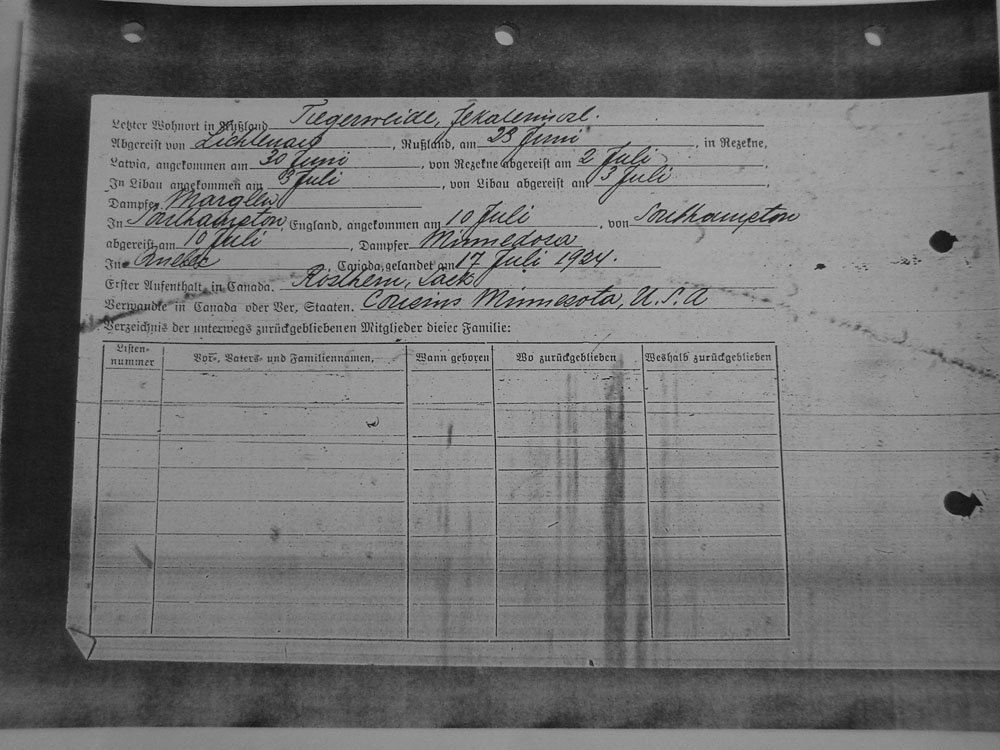 Letzter Wohnort in Rußland Tiegerweide, Jekaterinosl.
Abgereist von Lichtenau, Rußland, am 23 Juni, in Rezekne,
Latvia, angekommen am 30 Juni, von Rezekne abgereist am 2 Juli,
In Libau angekommen am 3 Juli, von Libau abgereist am 3 Juli,
Dampfer
In Southampton, England, angekommen am 10 Juli, von Southampton
abgereist am 10 Juli, Dampfer Minnedosa
In Quebec, Canada, gelandet am 17 Juli 1924.
Erster Aufenthalt in Canada. Rosthern, Sask
Verwandte in Canada oder Ver, Staaten. Cousins Minnesota, U.S.A
Verzeichnis der unterwegs zurückgebliebenen Mitglieder dieser Familie:
Listen-nummer Vor-, Vaters- und Familiennamen, Wann geboren Wo zurückgeblieben Weshalb zurückgeblieben